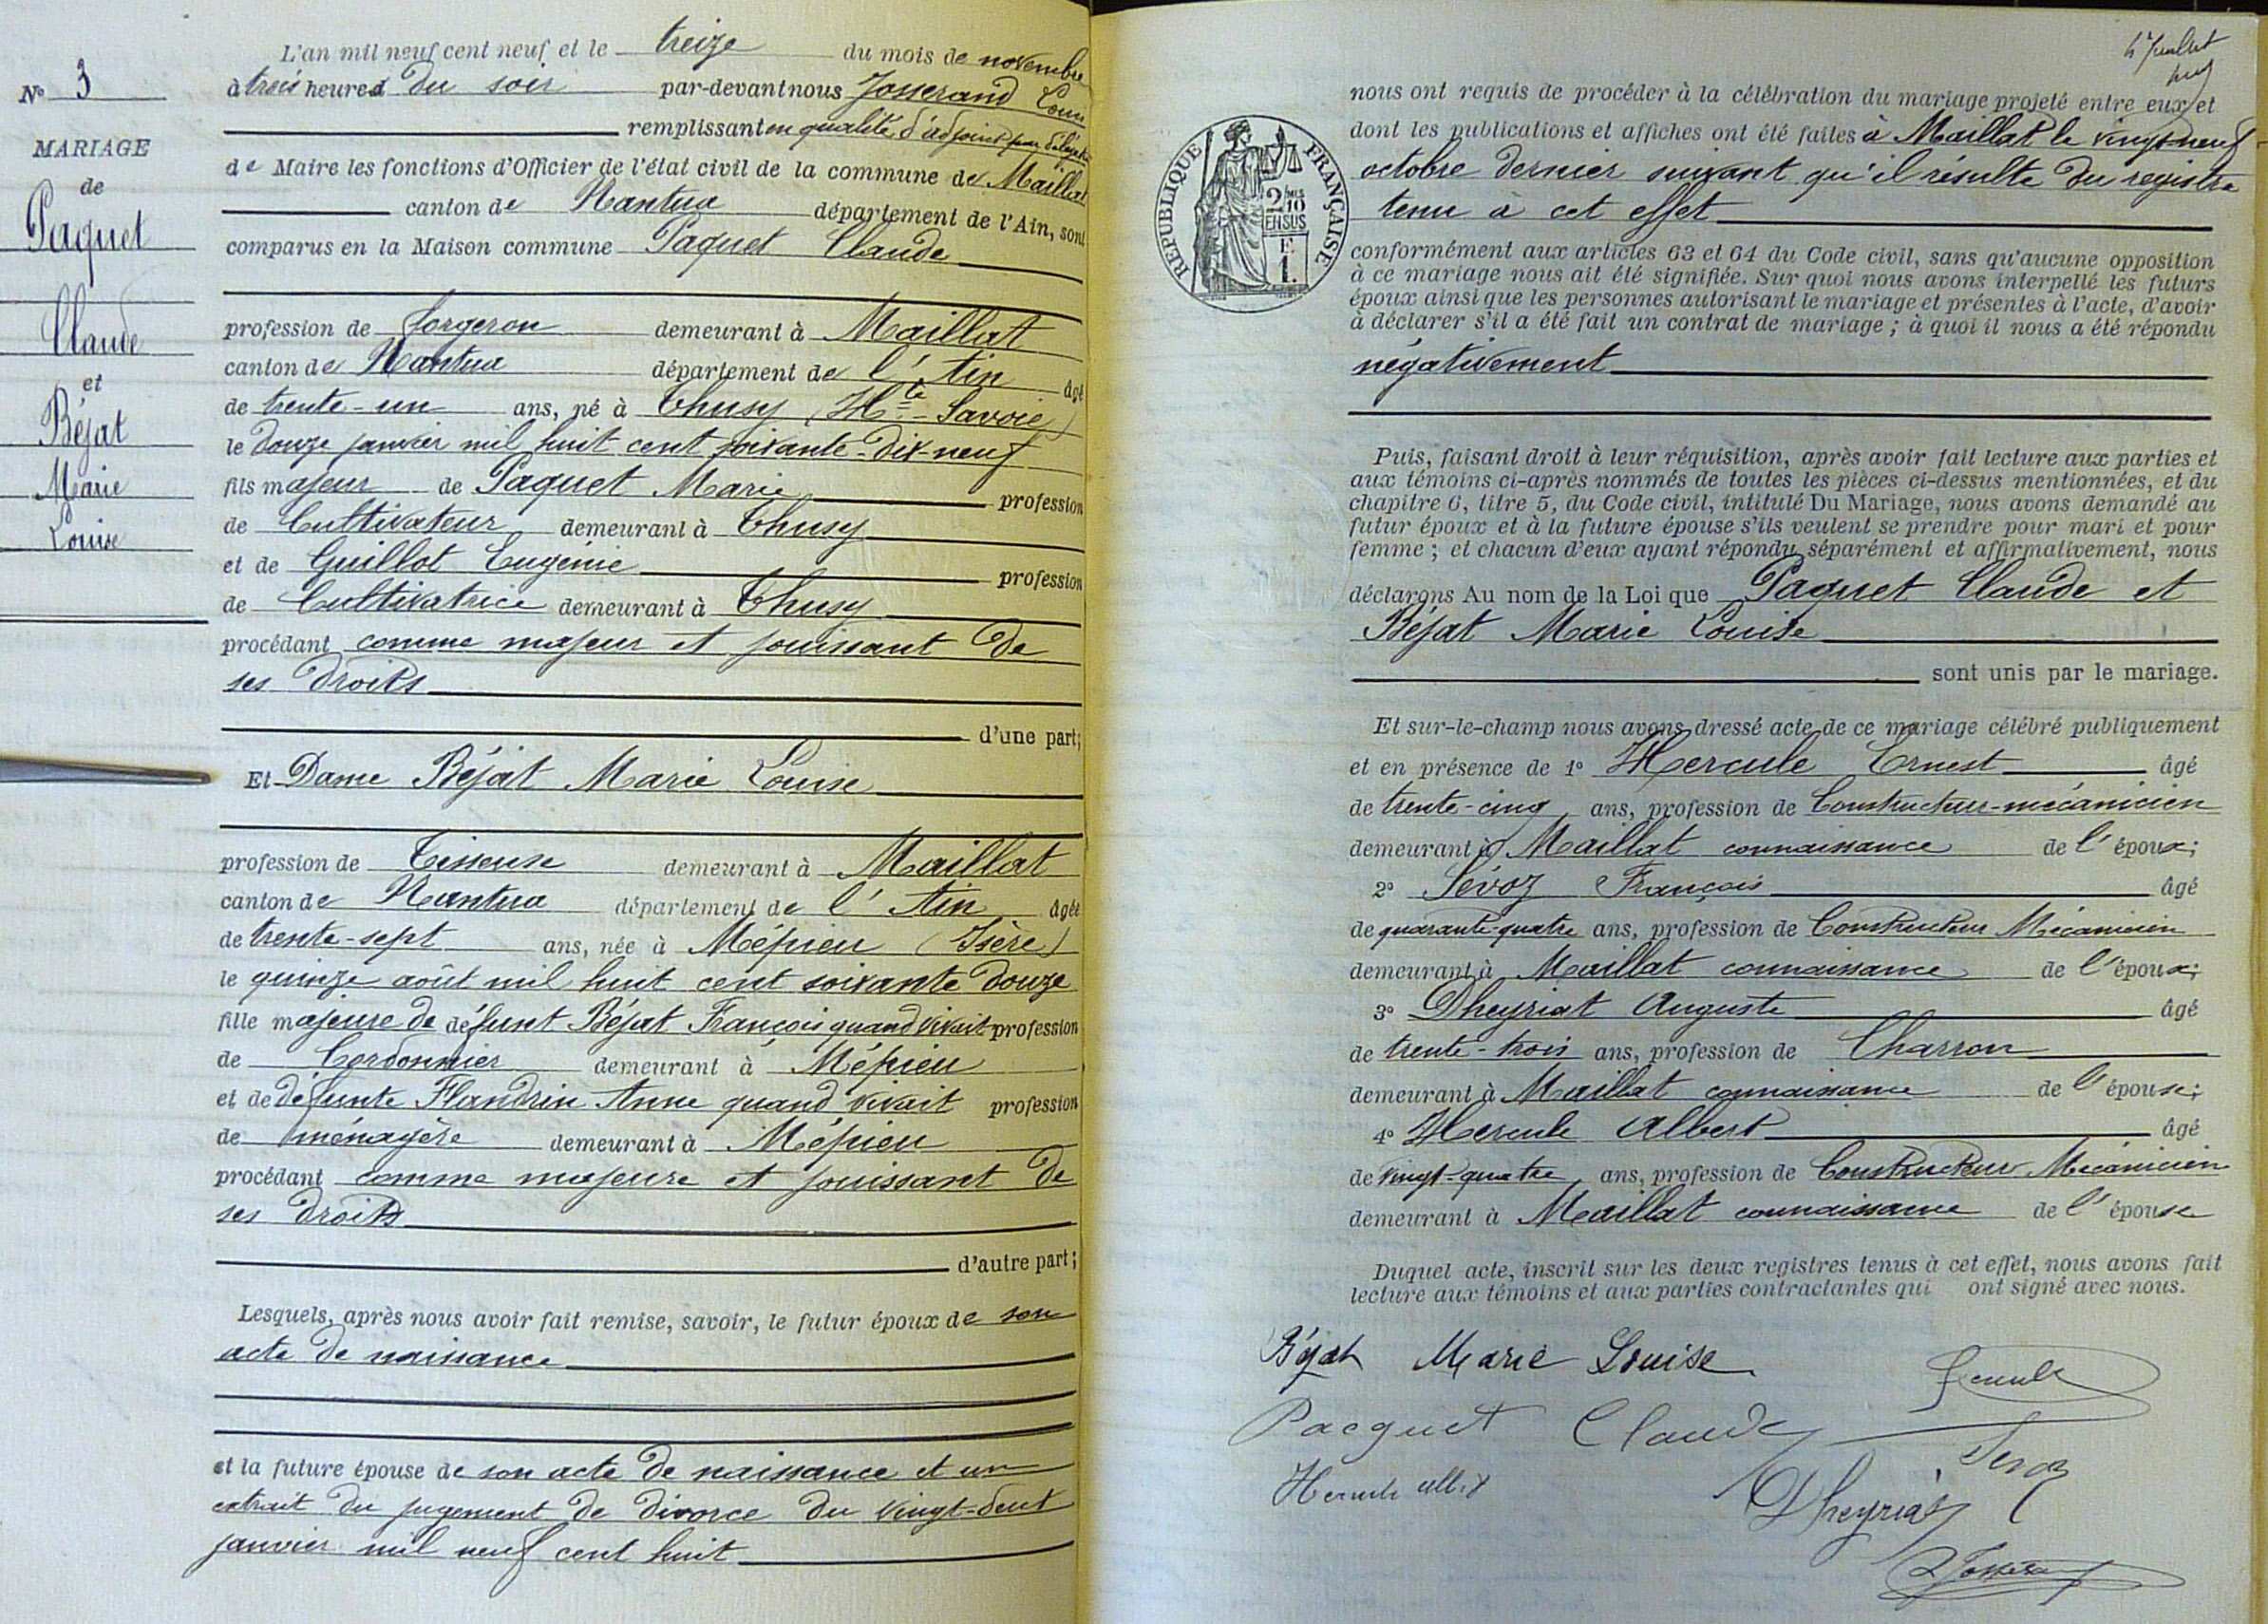 N° 3
MARIAGE
de
Paquet
Claude
et
Béjat
Marie
Louise
L'an mil neuf cent neuf et le treize du mois de novembre
à trois heures du soir par-devant nous Josserand Louis
remplissant en qualité d'adjoint par délégation
de Maire les fonctions d'Officier de l'état civil de la commune de Maillat
canton de Nantua département de l'Ain, sont
comparus en la Maison commune Paquet Claude
profession de forgeron demeurant à Maillat
canton de Nantua département de l'Ain âgé
de trente-un ans, né à Thusy (Hte-Savoie)
le douze janvier mil huit cent soixante-dix-neuf
fils majeur de Paquet Marie profession
de Cultivateur demeurant à Thusy
et de Guillot Eugénie profession
de Cultivatrice demeurant à Thusy
procédant comme majeur et jouissant de
ses droits
d'une part;
Et Dame Béjat Marie Louise
profession de Tisseuse demeurant à Maillat
canton de Nantua département de l'Ain âgée
de trente-sept ans, née à Mépieu (Isère)
le quinze août mil huit cent soixante douze
fille majeure de défunt Béjat François quand vivait profession
de Cordonnier demeurant à Mépieu
et de défunte Flandrin Anne quand vivait profession
de ménagère demeurant à Mépieu
procédant comme majeure et jouissant de
ses droits
d'autre part;
Lesquels, après nous avoir fait remise, savoir, le futur époux de son
acte de naissance
et la future épouse de son acte de naissance et un
extrait du jugement de divorce du vingt-deux
janvier mil neuf cent huit
RÉPUBLIQUE FRANÇAISE
2/10
EN SUS
1.
nous ont requis de procéder à la célébration du mariage projeté entre eux et
dont les publications et affiches ont été faites à Maillat le vingt-neuf
octobre dernier suivant qu'il résulte du registre
tenu à cet effet
conformément aux articles 63 et 64 du Code civil, sans qu'aucune opposition
à ce mariage nous ait été signifiée. Sur quoi nous avons interpellé les futurs
époux ainsi que les personnes autorisant le mariage et présentes à l'acte, d'avoir
à déclarer s'il a été fait un contrat de mariage ; à quoi il nous a été répondu
négativement
Puis, faisant droit à leur réquisition, après avoir fait lecture aux parties et
aux témoins ci-après nommés de toutes les pièces ci-dessus mentionnées, et du
chapitre 6, titre 5, du Code civil, intitulé Du Mariage, nous avons demandé au
futur époux et à la future épouse s'ils veulent se prendre pour mari et pour
femme ; et chacun d'eux ayant répondu séparément et affirmativement, nous
déclarons Au nom de la Loi que Paquet Claude et
Béjat Marie Louise
sont unis par le mariage.
Et sur-le-champ nous avons dressé acte de ce mariage célébré publiquement
et en présence de 1° Hercule Ernest âgé
de trente-cinq ans, profession de Constructeur-mécanicien
demeurant à Maillat connaissance de l'époux;
2° Sévoz François âgé
de quarante-quatre ans, profession de Constructeur Mécanicien
demeurant à Maillat connaissance de l'époux;
3° Dheyriat Auguste âgé
de trente-trois ans, profession de Charron
demeurant à Maillat connaissance de l'épouse;
4° Hercule Albert âgé
de vingt-quatre ans, profession de Constructeur Mécanicien
demeurant à Maillat connaissance de l'épouse
Duquel acte, inscrit sur les deux registres tenus à cet effet, nous avons fait
lecture aux témoins et aux parties contractantes qui ont signé avec nous.
Béjat Marie Louise
Pacquet Claude
Sevoz
Dheyriat